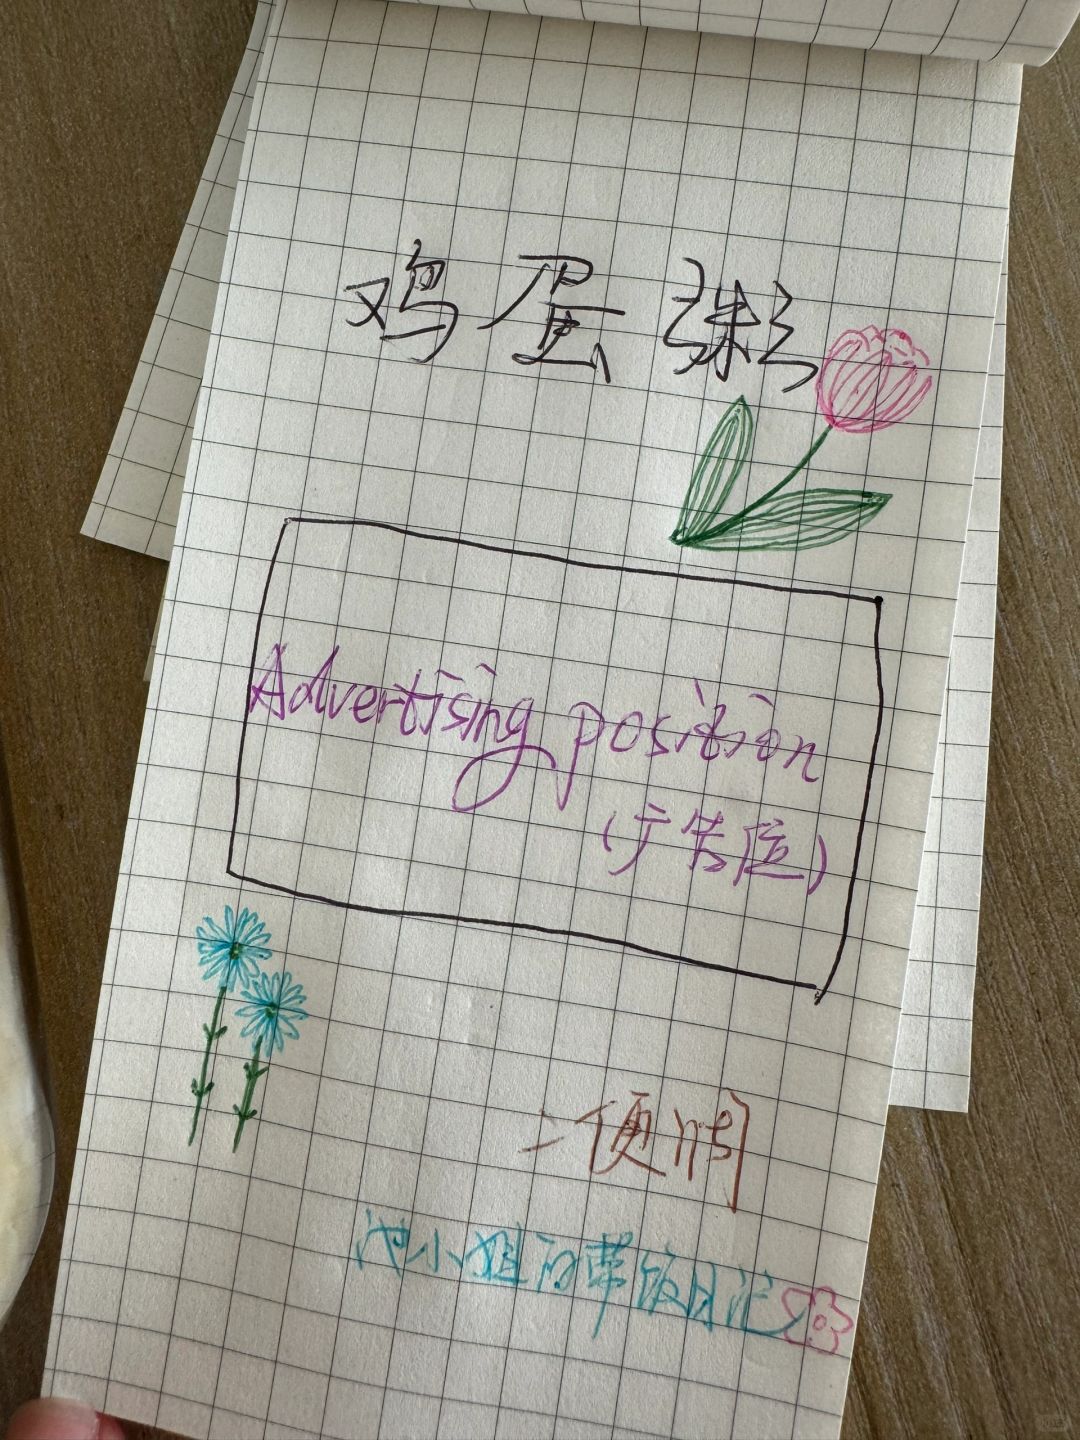 鸡蛋粥
Advertising position
(广告位)
一便消
沈小姐的草饭日记